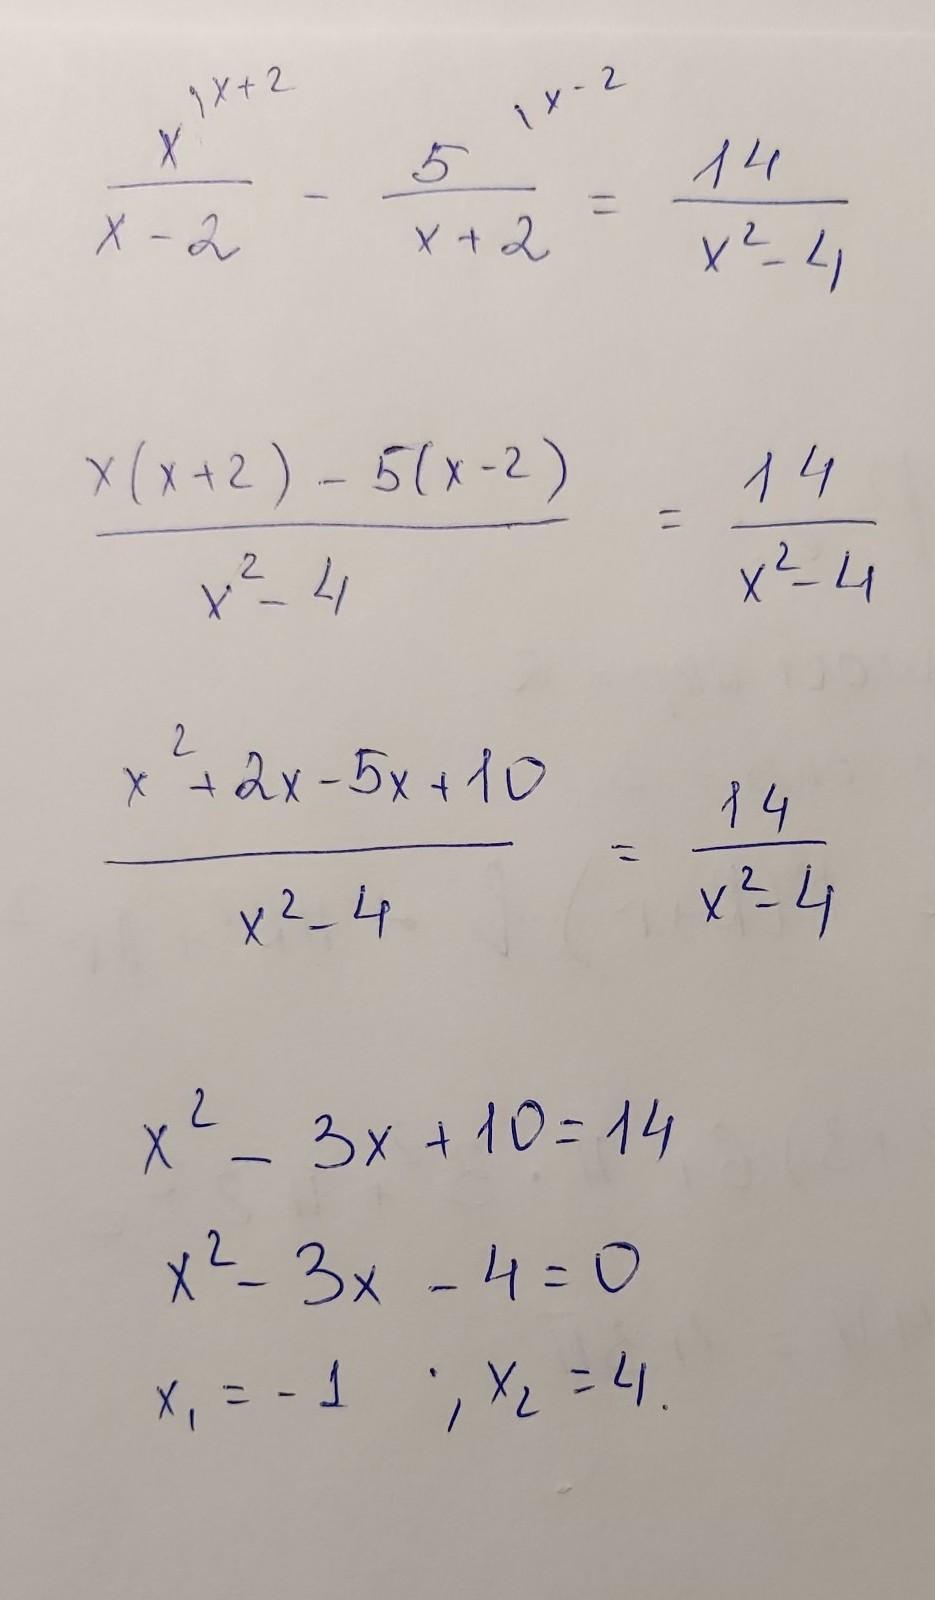 x/(x - 2) ˌx+2 - 5/(x + 2) ˌx-2 = 14/(x² - 4)
(x(x+2) - 5(x-2))/(x² - 4) = 14/(x² - 4)
(x² + 2x - 5x + 10)/(x² - 4) = 14/(x² - 4)
x² - 3x + 10 = 14
x² - 3x - 4 = 0
x₁ = -1 ; x₂ = 4.